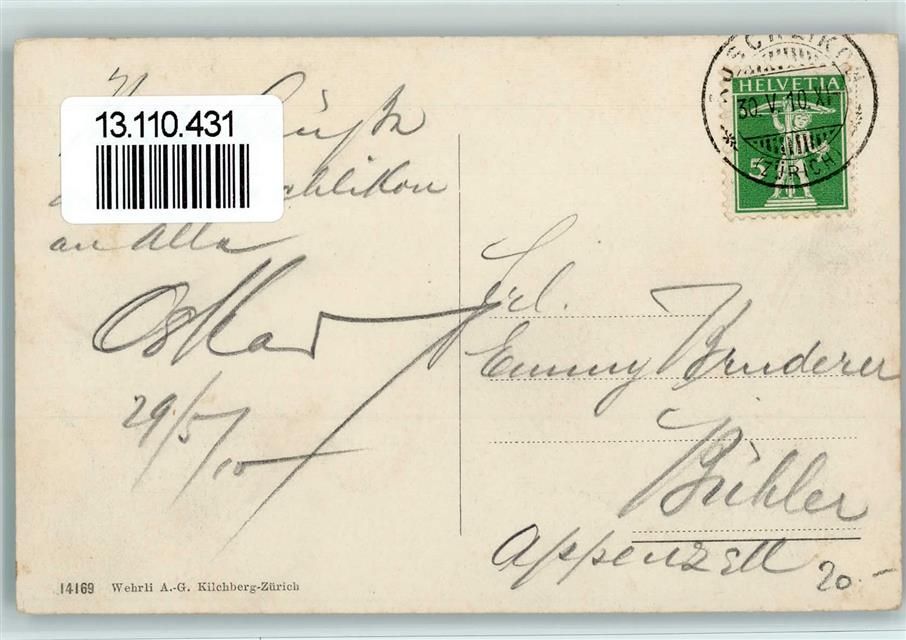 13.110.431
Grüße
an Alle
Oskar
29/5/10
RÜSCHLIKON
30.V.10.XI
(ZÜRICH)
HELVETIA
5
Frl.
Emmy Bruderer
Bühler
Appenzell
20.-
14169 Wehrli A.-G. Kilchberg-Zürich